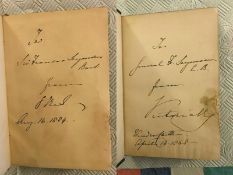 To
Sir Francis Seymour
Bart
from
Aug. 14. 1884.
To
General F. Seymour
C.B.
from
Victoria R
April 14 1868